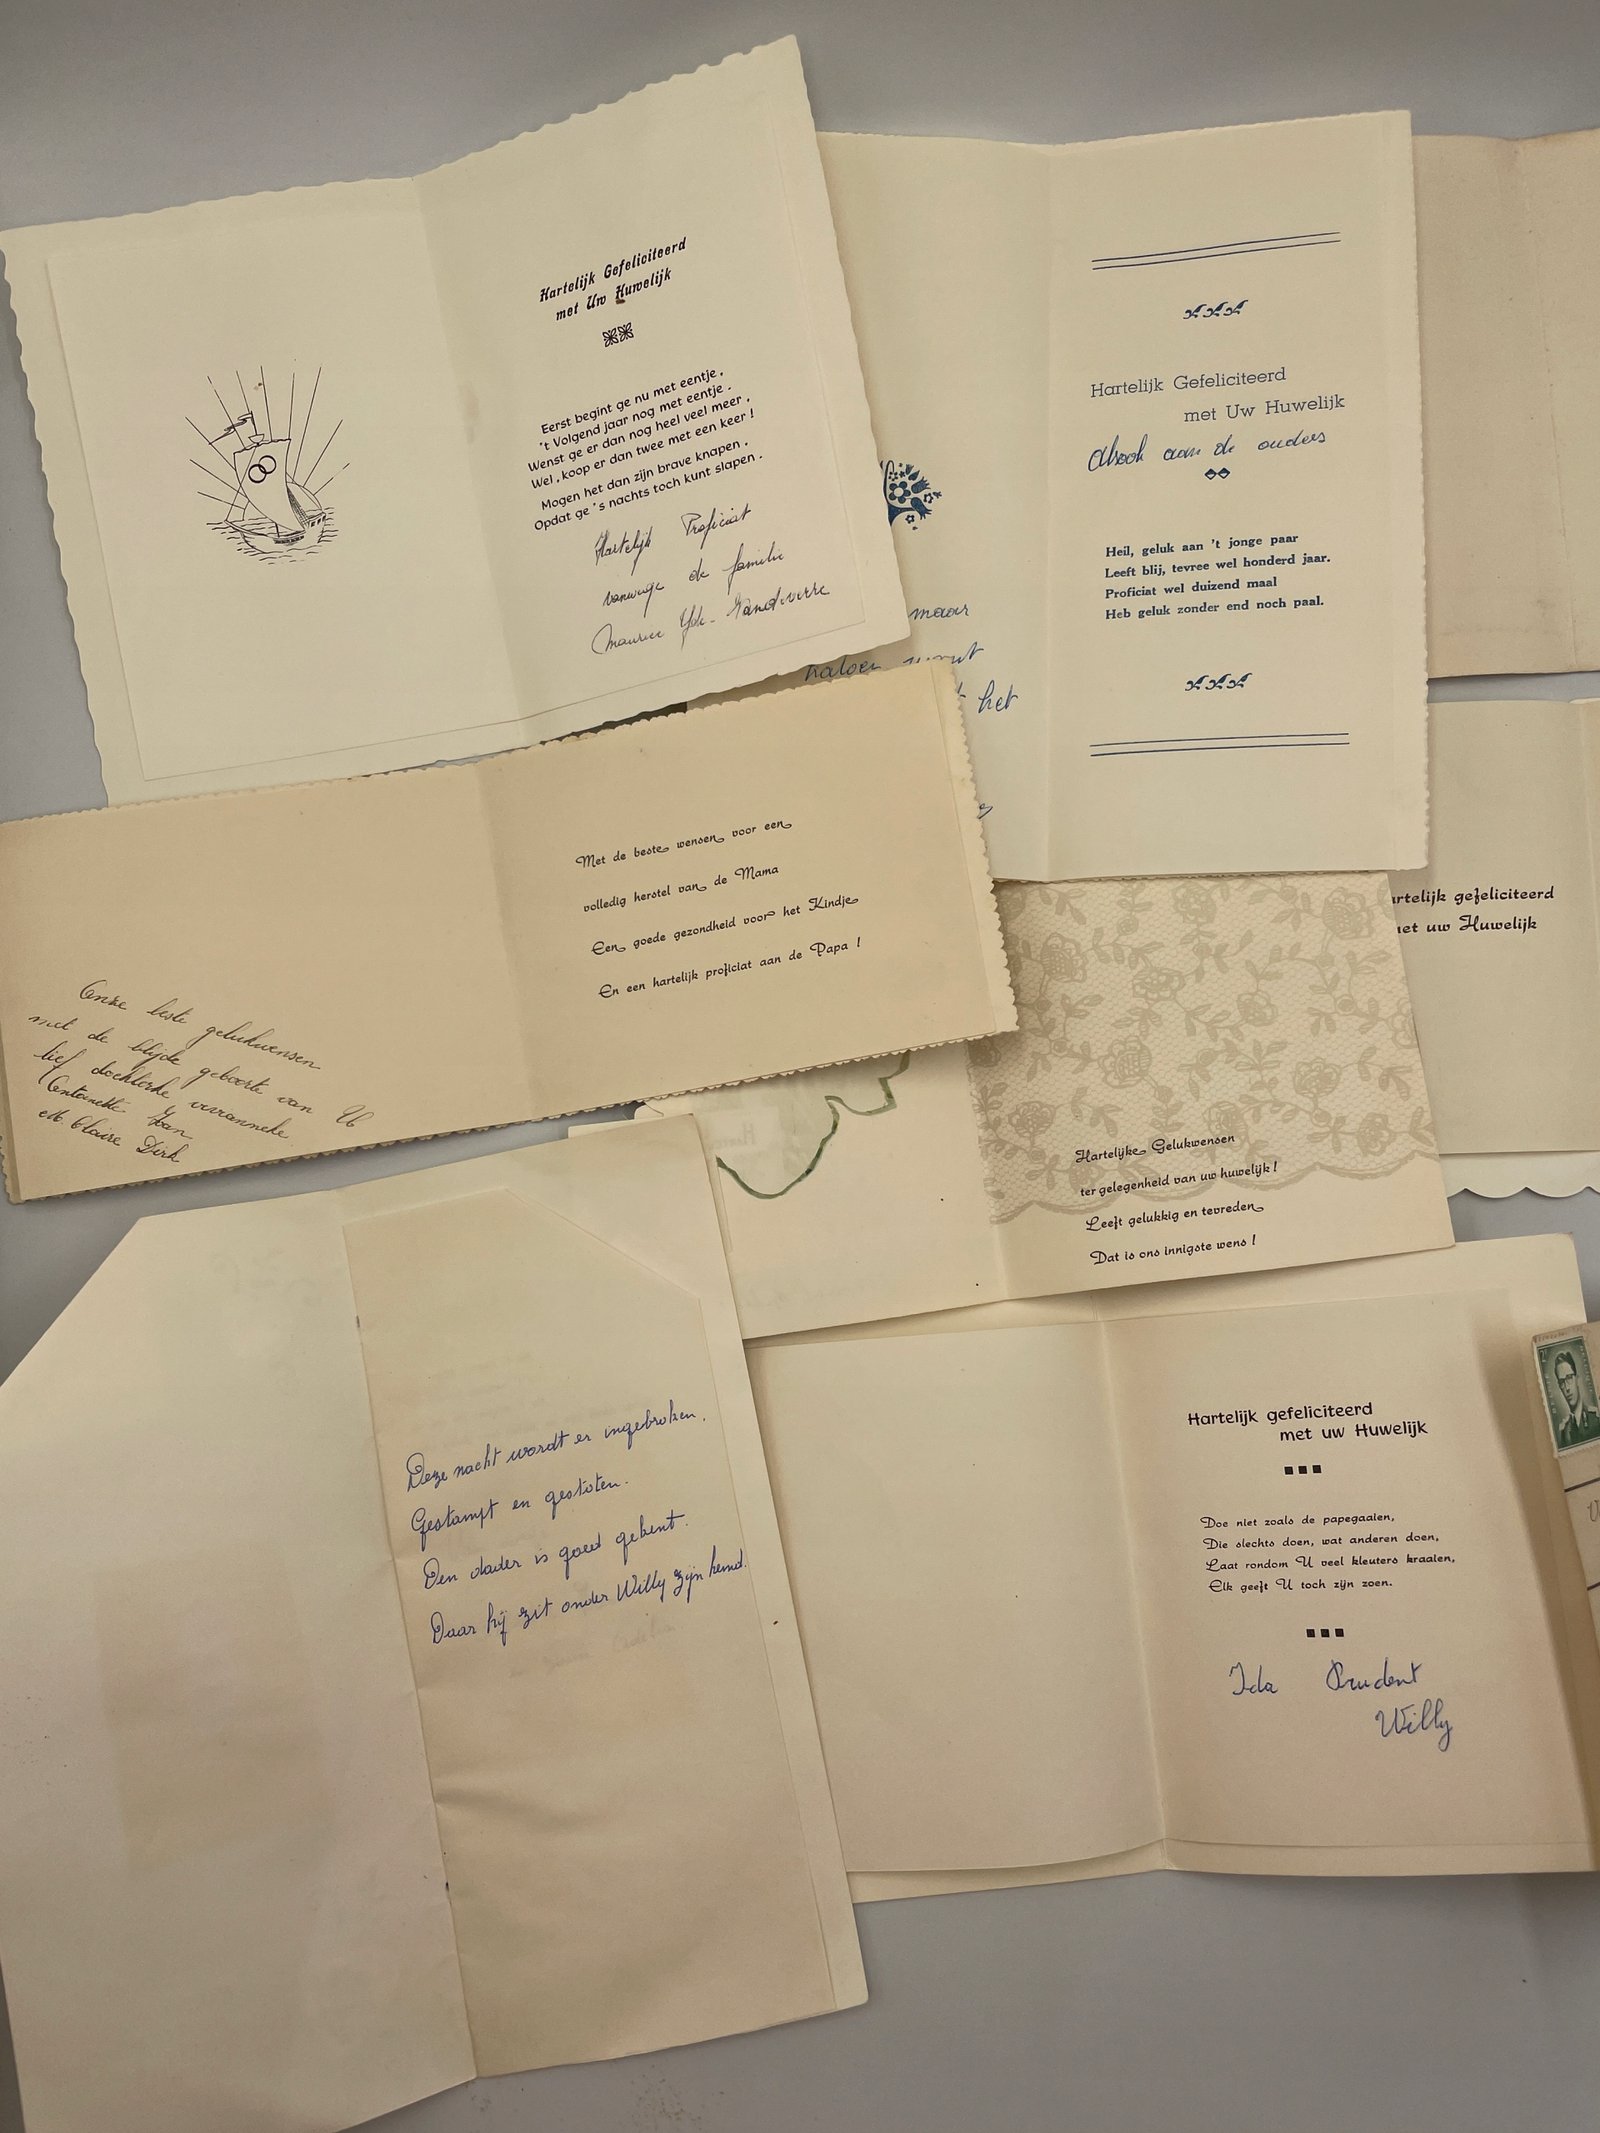 Hartelijk Gefeliciteerd
met Uw Huwelijk
Eerst begint ge nu met eentje,
't Volgend jaar nog met eentje.
Wenst ge er dan nog heel veel meer,
Wel, koop er dan twee met een keer!
Mogen het dan zijn brave knapen,
Opdat ge 's nachts toch kunt slapen.
Hartelijk Proficiat
vanwege de familie
Maurice
Hartelijk Gefeliciteerd
met Uw Huwelijk
Alsook aan de ouders
Heil, geluk aan 't jonge paar
Leeft blij, tevree wel honderd jaar.
Proficiat wel duizend maal
Heb geluk zonder end noch paal.
maar
het
Met de beste wensen voor een
volledig herstel van de Mama
Een goede gezondheid voor het Kindje
En een hartelijk proficiat aan de Papa !
Onze beste gelukwensen
met de blijde geboorte van U
lief dochterke
Antoinette
M. Claire Dirk
rtelijk gefeliciteerd
et uw Huwelijk
Hartelijke Gelukwensen
ter gelegenheid van uw huwelijk!
Leeft gelukkig en tevreden
Dat is ons innigste wens !
Deze nacht wordt er ingebroken.
Gestampt en gestoten.
Den dader is goed gekent.
Daar hij zit onder Willy zijn hemd.
Hartelijk gefeliciteerd
met uw Huwelijk
Doe niet zoals de papegaaien,
Die slechts doen, wat anderen doen,
Laat rondom U veel kleuters kraaien,
Elk geeft U toch zijn zoen.
Ida Prudent
Willy